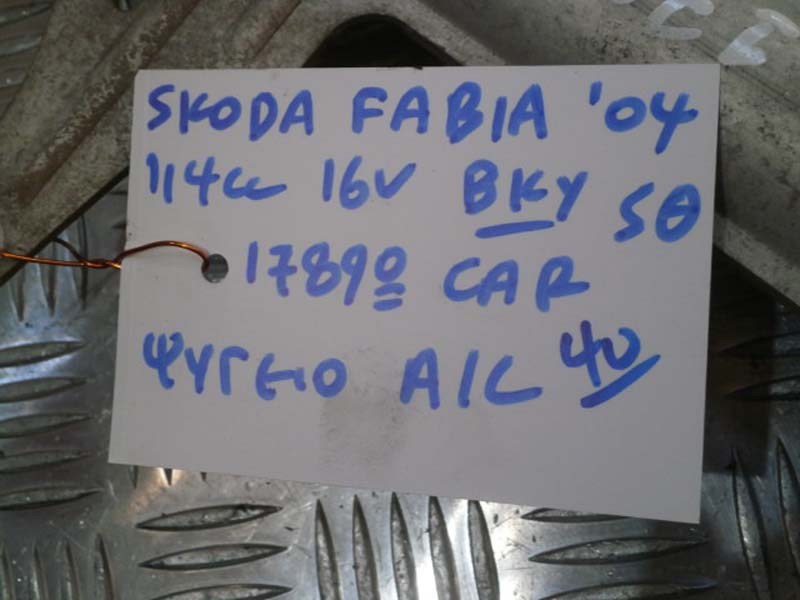 SKODA FABIA '04
1,4cc 16V BKY 5Θ
17890 CAR
ΨΥΓΕΙΟ A/C 40